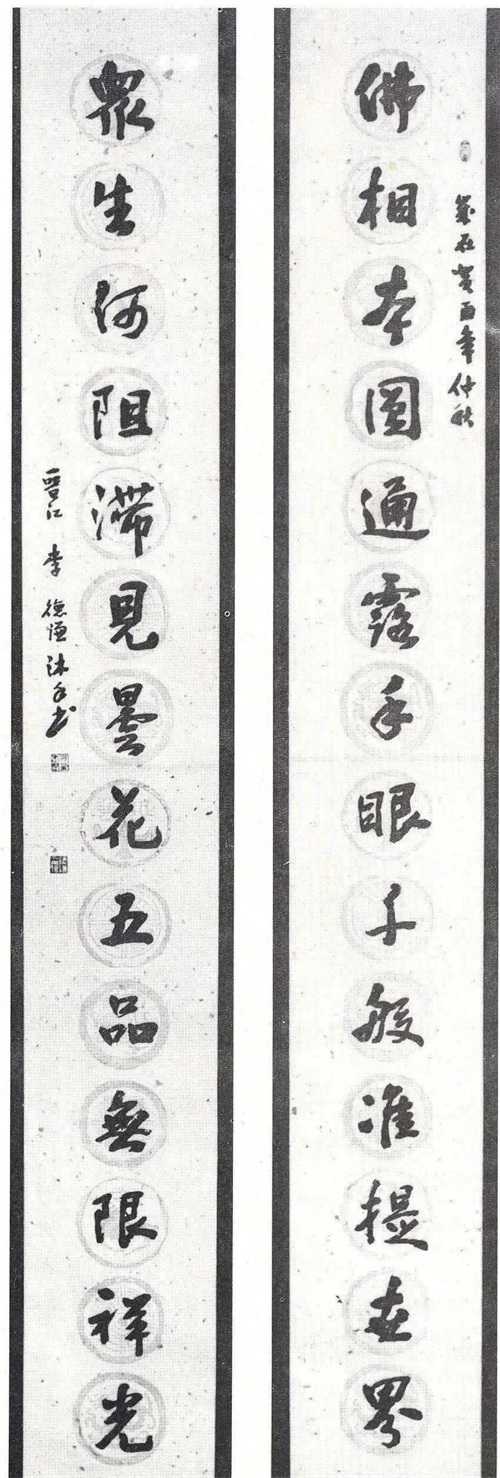 歲在癸酉年仲秋
佛相本圓通露手眼千般准提世界
眾生何阻滯見曇花五品無限祥光
晋江 李德謙沐手书